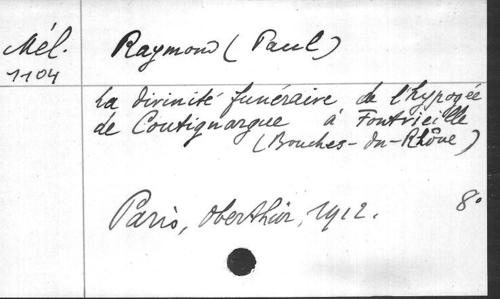 Mél.
1104
Raymond (Paul)
La divinité funéraire de l'hypogée
de Coutignargue à Fontvieille
(Bouches-du-Rhône)
Paris, Oberthür, 1912. 8°